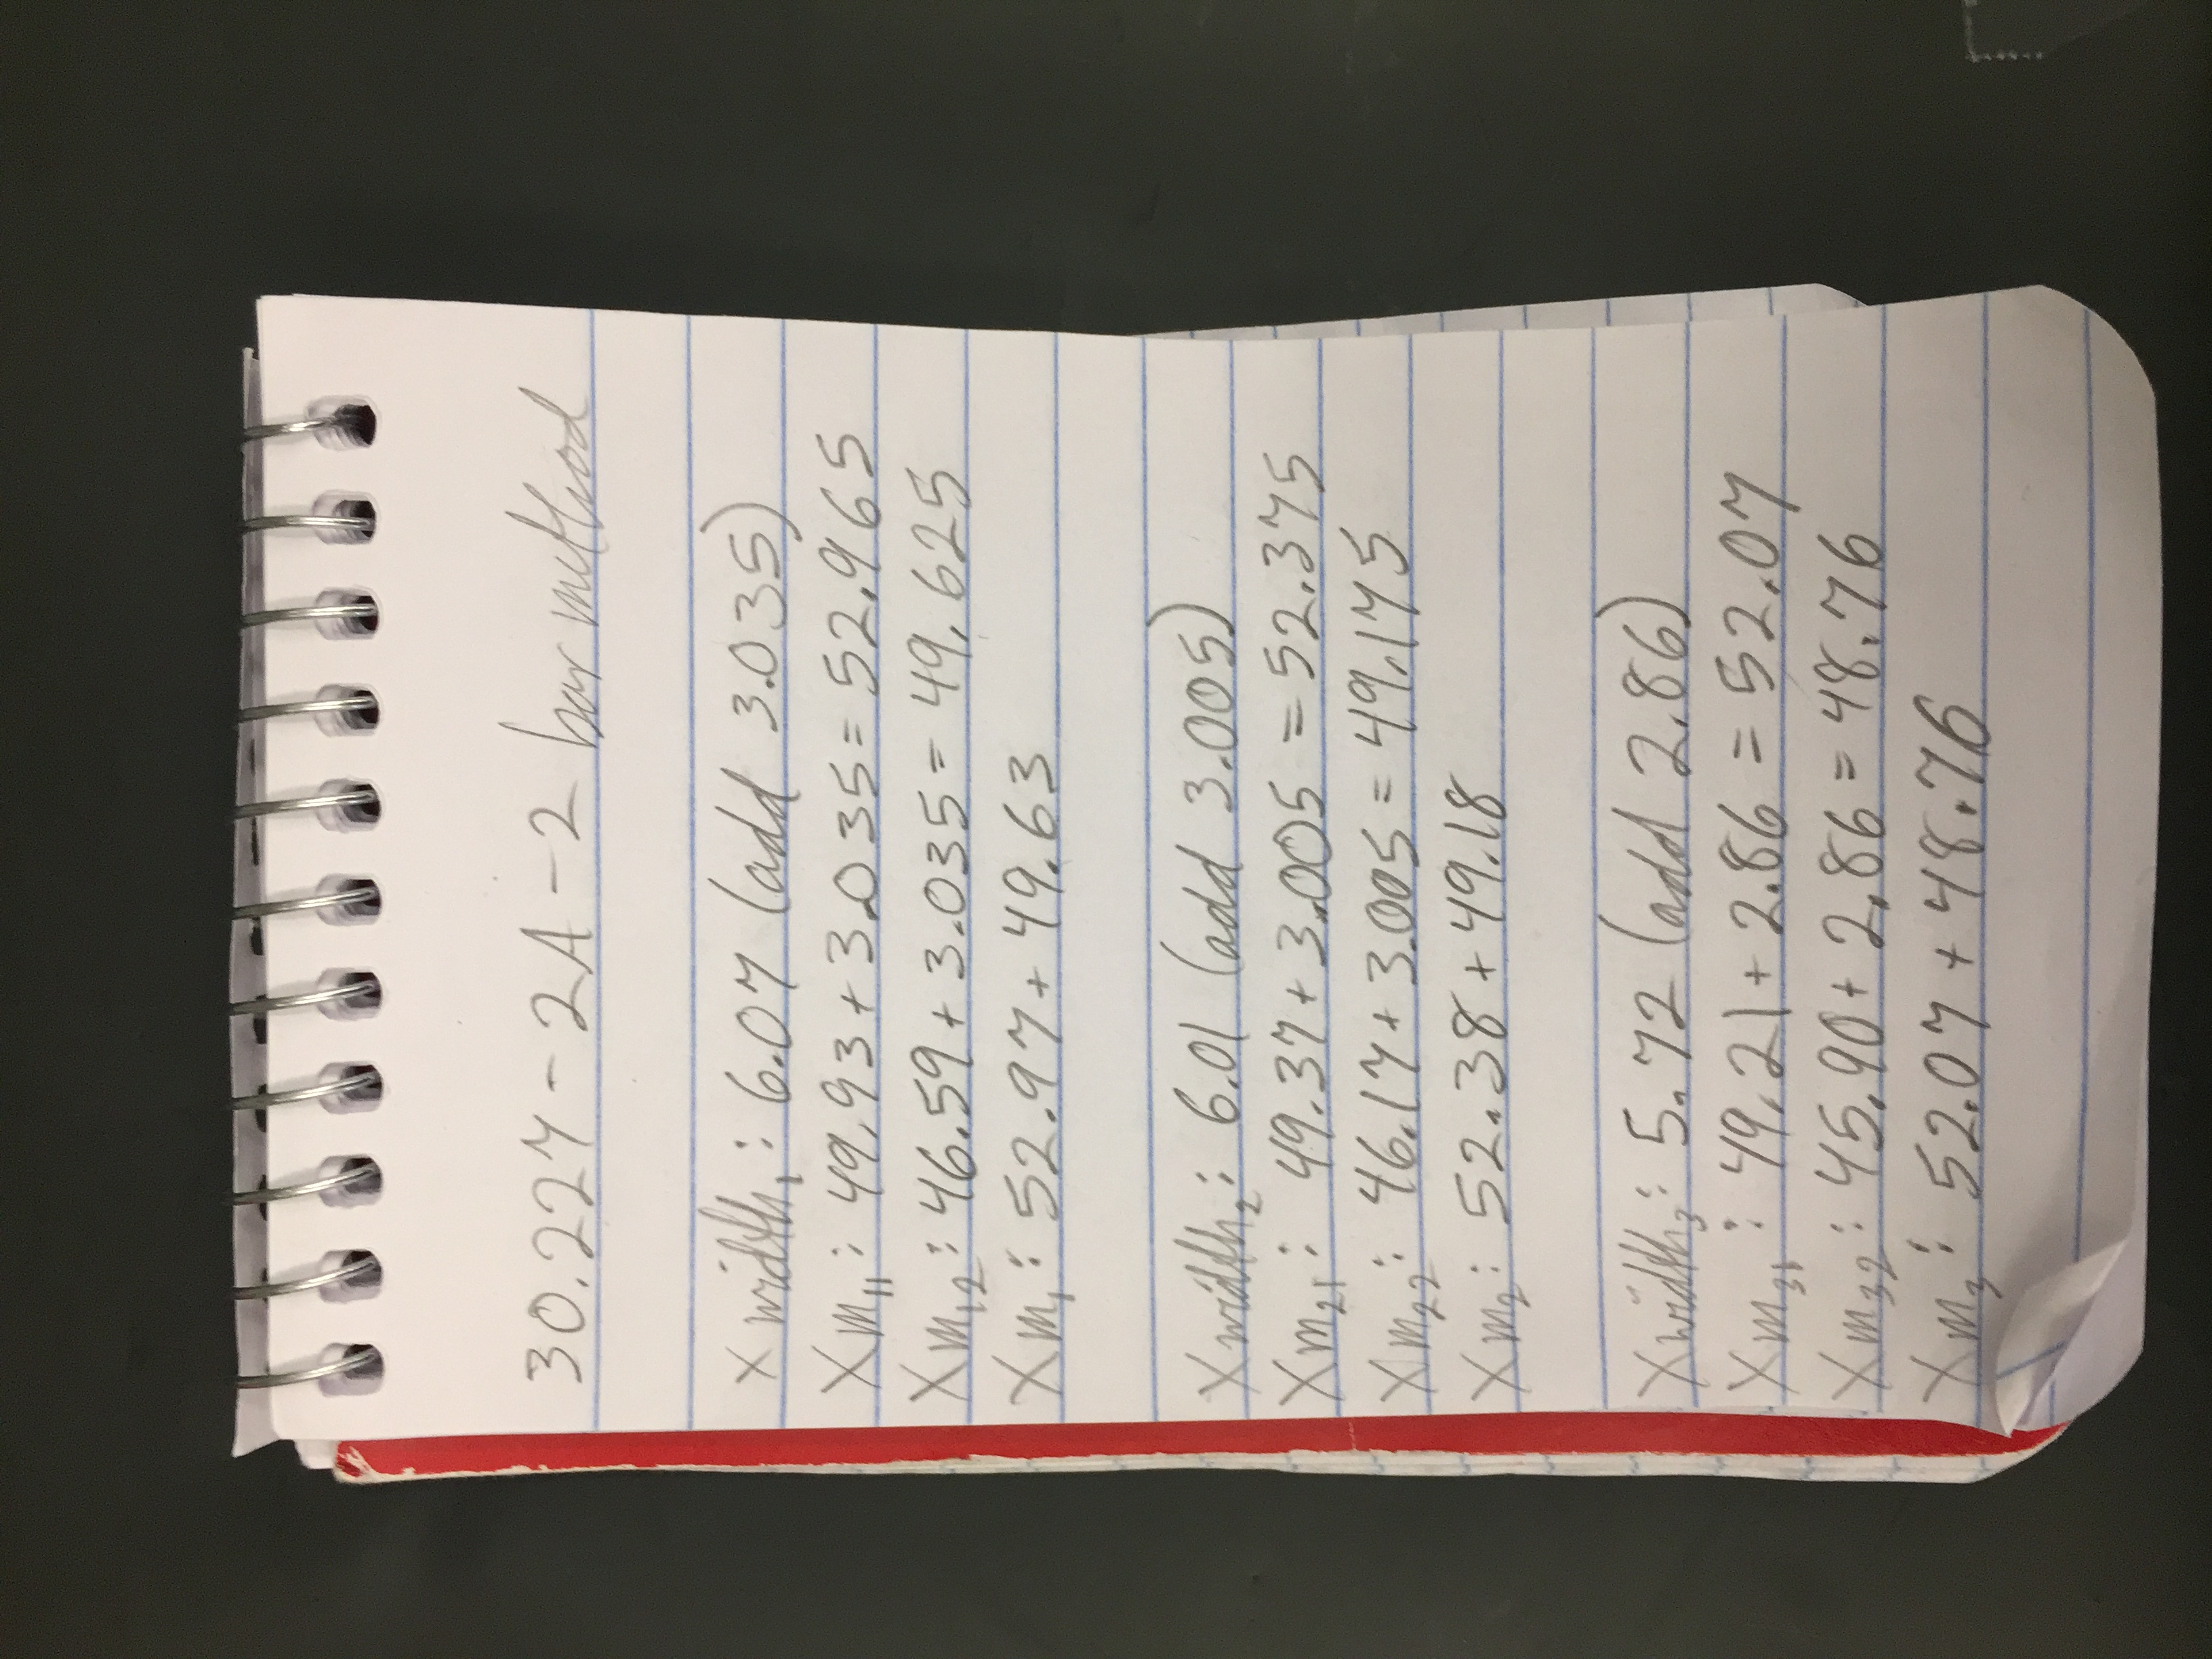 30.227-2A-2 bar method
X width₁: 6.07 (add 3.035)
Xm₁₁: 49.93+3.035=52.965
Xm₁₂: 46.59+3.035=49.625
Xm₁: 52.97+49.63
X width₂: 6.01 (add 3.005)
Xm₂₁: 49.37+3.005=52.375
Xm₂₂: 46.17+3.005=49.175
Xm₂: 52.38+49.18
X width₃: 5.72 (add 2.86)
Xm₃₁: 49.21+2.86=52.07
Xm₃₂: 45.90+2.86=48.76
Xm₃: 52.07+48.76